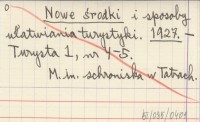 Nowe środki i sposoby
ułatwiania turystyki. 1927. –
Turysta 1, nr 4-5.
M. in. schroniska w Tatrach.